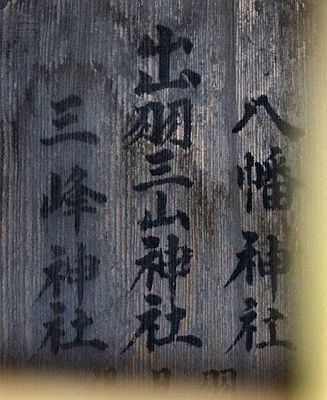 八幡神社
出羽三山神社
三峰神社